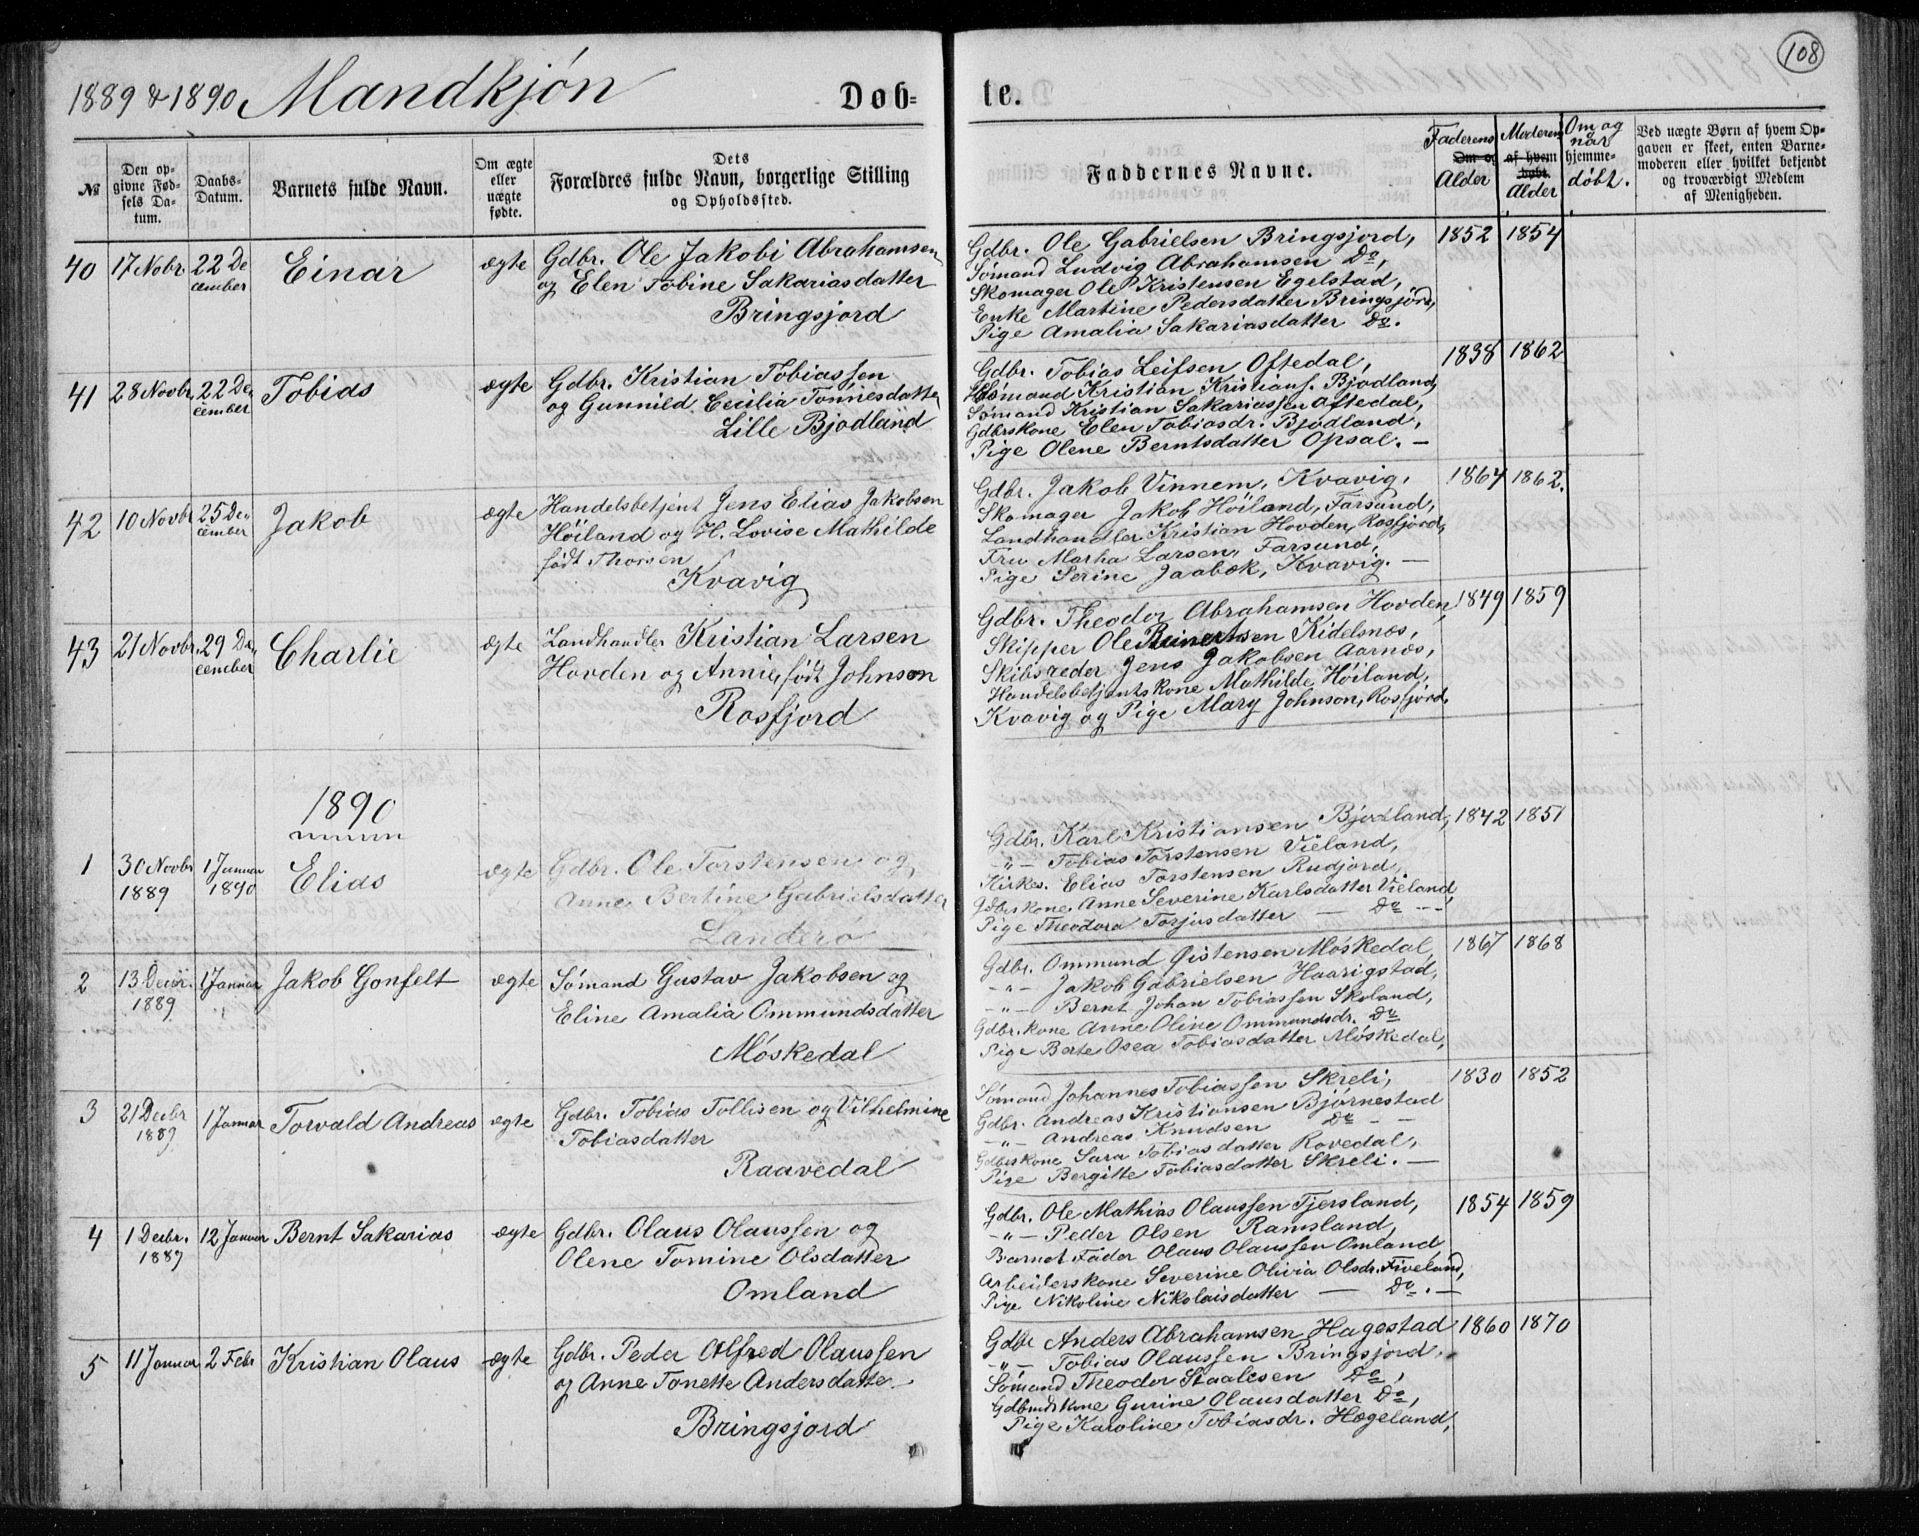 108
1889 & 1890 Mandkjøn
Døb=
te.
№
Den op-
givne Fød-
sels Da-
tum.
Daabs-
Datum.
Barnets fulde Navn.
Om ægte
eller
uægte
fødte.
Dets
Forældres fulde Navn, borgerlige Stilling
og Opholdssted.
Faddernes Navne.
Faderens
Om og
Alder
Moderens
af hvem
døbt.
Alder
Om og
når
hjemme-
døbt.
Ved uægte Børn af hvem Op-
gaven er skeet, enten Barne-
moderen eller hvilket bekjendt
og troværdigt Medlem
af Menigheden.
40 17 Nobr. 22 De
cember
Einar
ægte
Gdbr. Ole Jakobi Abrahamsen
og Elen Tobine Sakariasdatter
Bringsjord
Gdbr. Ole Gabrielsen Bringsjord,
Sømand Ludvig Abrahamsen Do,
Skomager Ole Kristensen Egelstad,
Enke Martine Pedersdatter Bringsjord,
Pige Amalia Sakariasdatter Do.
1852 1854
41 28 Novbr. 22 De-
cember
Tobias
ægte
Gdbr. Kristian Tobiassen
og Gunnild Cecilia Tønnesdatter
Lille Bjodland
Gdbr. Tobias Leifsen Oftedal,
Sømand Kristian Kristians. Bjodland,
Sømand Kristian Sakariassen Oftedal,
Gdbrskone Elen Tobiasdr. Bjodland,
Pige Olene Berntsdatter Opsal. —
1838 1862
42 10 Novbr 25 De-
cember
Jakob
ægte
Handelsbetjent Jens Elias Jakobsen
Høiland og H. Lovise Mathilde
født Thorsen
Kvavig
Gdbr. Jakob Vinnem, Kvavig,
Skomager Jakob Høiland, Farsund,
Landhandler Kristian Hovden, Rosfjord,
Fru Martha Larsen, Farsund,
Pige Serine Jaabæk, Kvavig. —
1864 1862.
43 21 Novbr. 29 De-
cember
Charlie
ægte
Landhandler Kristian Larsen
Hovden og Annie, født Johnson
Rosfjord
Gdbr. Theodor Abrahamsen Hovden,
Skipper Ole Reinertsen Kidelsnæs,
Skibsreder Jens Jakobsen Aarnæs,
Handelsbetjentskone Mathilde Høiland,
Kvavig og Pige Mary Johnson, Rosfjord.
1849 1859
1890
1 30 Novbr
1889
1 Januar
1890
Elias
ægte
Gdbr. Ole Torstensen og
Anne Bertine Gabrielsdatter
Landerø
Gdbr. Karl Kristiansen Bjodland,
-"- Tobias Torstensen Vieland,
Kirkes. Elias Torstensen Rudjord,
Gdbrskone Anne Severine Karlsdatter Vieland,
Pige Theodora Torjusdatter — Do —
1842 1851
2 13 Decbr.
1889
1 Januar
"
Jakob Gonfelt
ægte
Sømand Gustav Jakobsen og
Eline Amalia Ommundsdatter
Møskedal
Gdbr. Ommund Østensen Møskedal,
-"- Jakob Gabrielsen Haarigstad,
-"- Bernt Johan Tobiassen Skoland,
Gdbr.kone Anne Oline Ommundsdr. Do
Pige Berte Osea Tobiasdatter Møskedal,
1867 1868
3 21 Decbr
1889
1 Januar
Torvald Andreas
ægte
Gdbr. Tobias Tollisen og Vilhelmine
Tobiasdatter
Raavedal
Sømand Johannes Tobiassen Skreli,
Gdbr. Andreas Kristiansen Bjørnestad
-"- Andreas Knudsen Do - -
Gdbrskone Sara Tobiasdatter Rovedal,
Pige Bergitte Tobiasdatter Skreli. —
1830 1852
4 1 Decbr.
1889
12 Januar
Bernt Sakarias
ægte
Gdbr. Olaus Olaussen og
Olene Tomine Olsdatter
Omland
Gdbr. Ole Mathias Olaussen Tjersland,
-"- Peder Olsen Ramsland,
Barnet Fader Olaus Olaussen Omland
Arbeiderskone Severine Olivia Olsdr. Fiveland,
Pige Nikoline Nikolaisdatter — Do. —
1854 1859
5 11 Januar 2 Febr
Kristian Olaus
ægte
Gdbr. Peder Alfred Olaussen
og Anne Tonette Andersdatte
Bringsjord
Gdbr Anders Abrahamsen Hagestad
-"- Tobias Olaussen Bringsjord,
Sømand Theodor Staalesen Do,
Gdbmdskone Gurine Olausdatter Do,
Pige Karoline Tobiasdr. Hægeland,
1860 1870